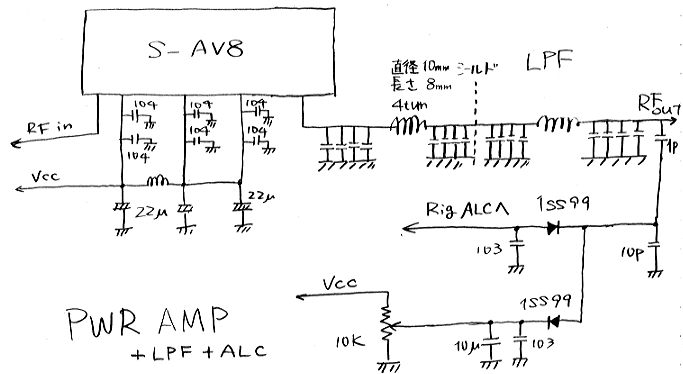 S-AV8
LPF
直径10mm シールド
長さ 8mm
4turn
RF out
104 104 104
RF in
104 104 104
1p
Vcc
22μ 22μ
Rig ALCへ
1SS99
103
10p
Vcc
1SS99
10K
10μ
103
PWR AMP
+LPF+ALC